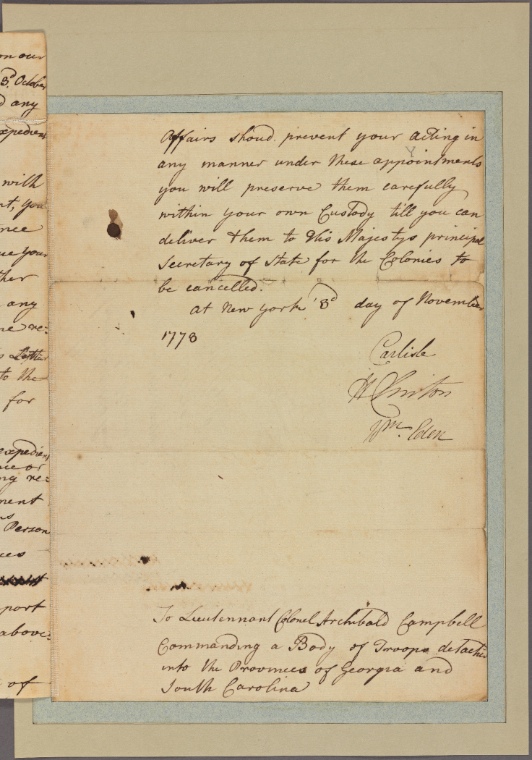 on our
3d. October
d any
expedien
with
nt, you
nce
ue your
ther
any
ne re=
to the
for
expedien
ce or
ng re=
ment
Person
ces
port
above=
of
Affairs shoud prevent your acting in
any manner under these appointments
you will preserve them carefully
within your own Custody till you can
deliver them to His Majestys principal
Secretary of State for the Colonies to
be cancelled.
At New York 3d day of November
1778
Carlisle
H Clinton
Wm. Eden
To Lieutennant Colonel Archibald Campbell
Commanding a Body of Troops detache
into the Provinces of Georgia and
South Carolina